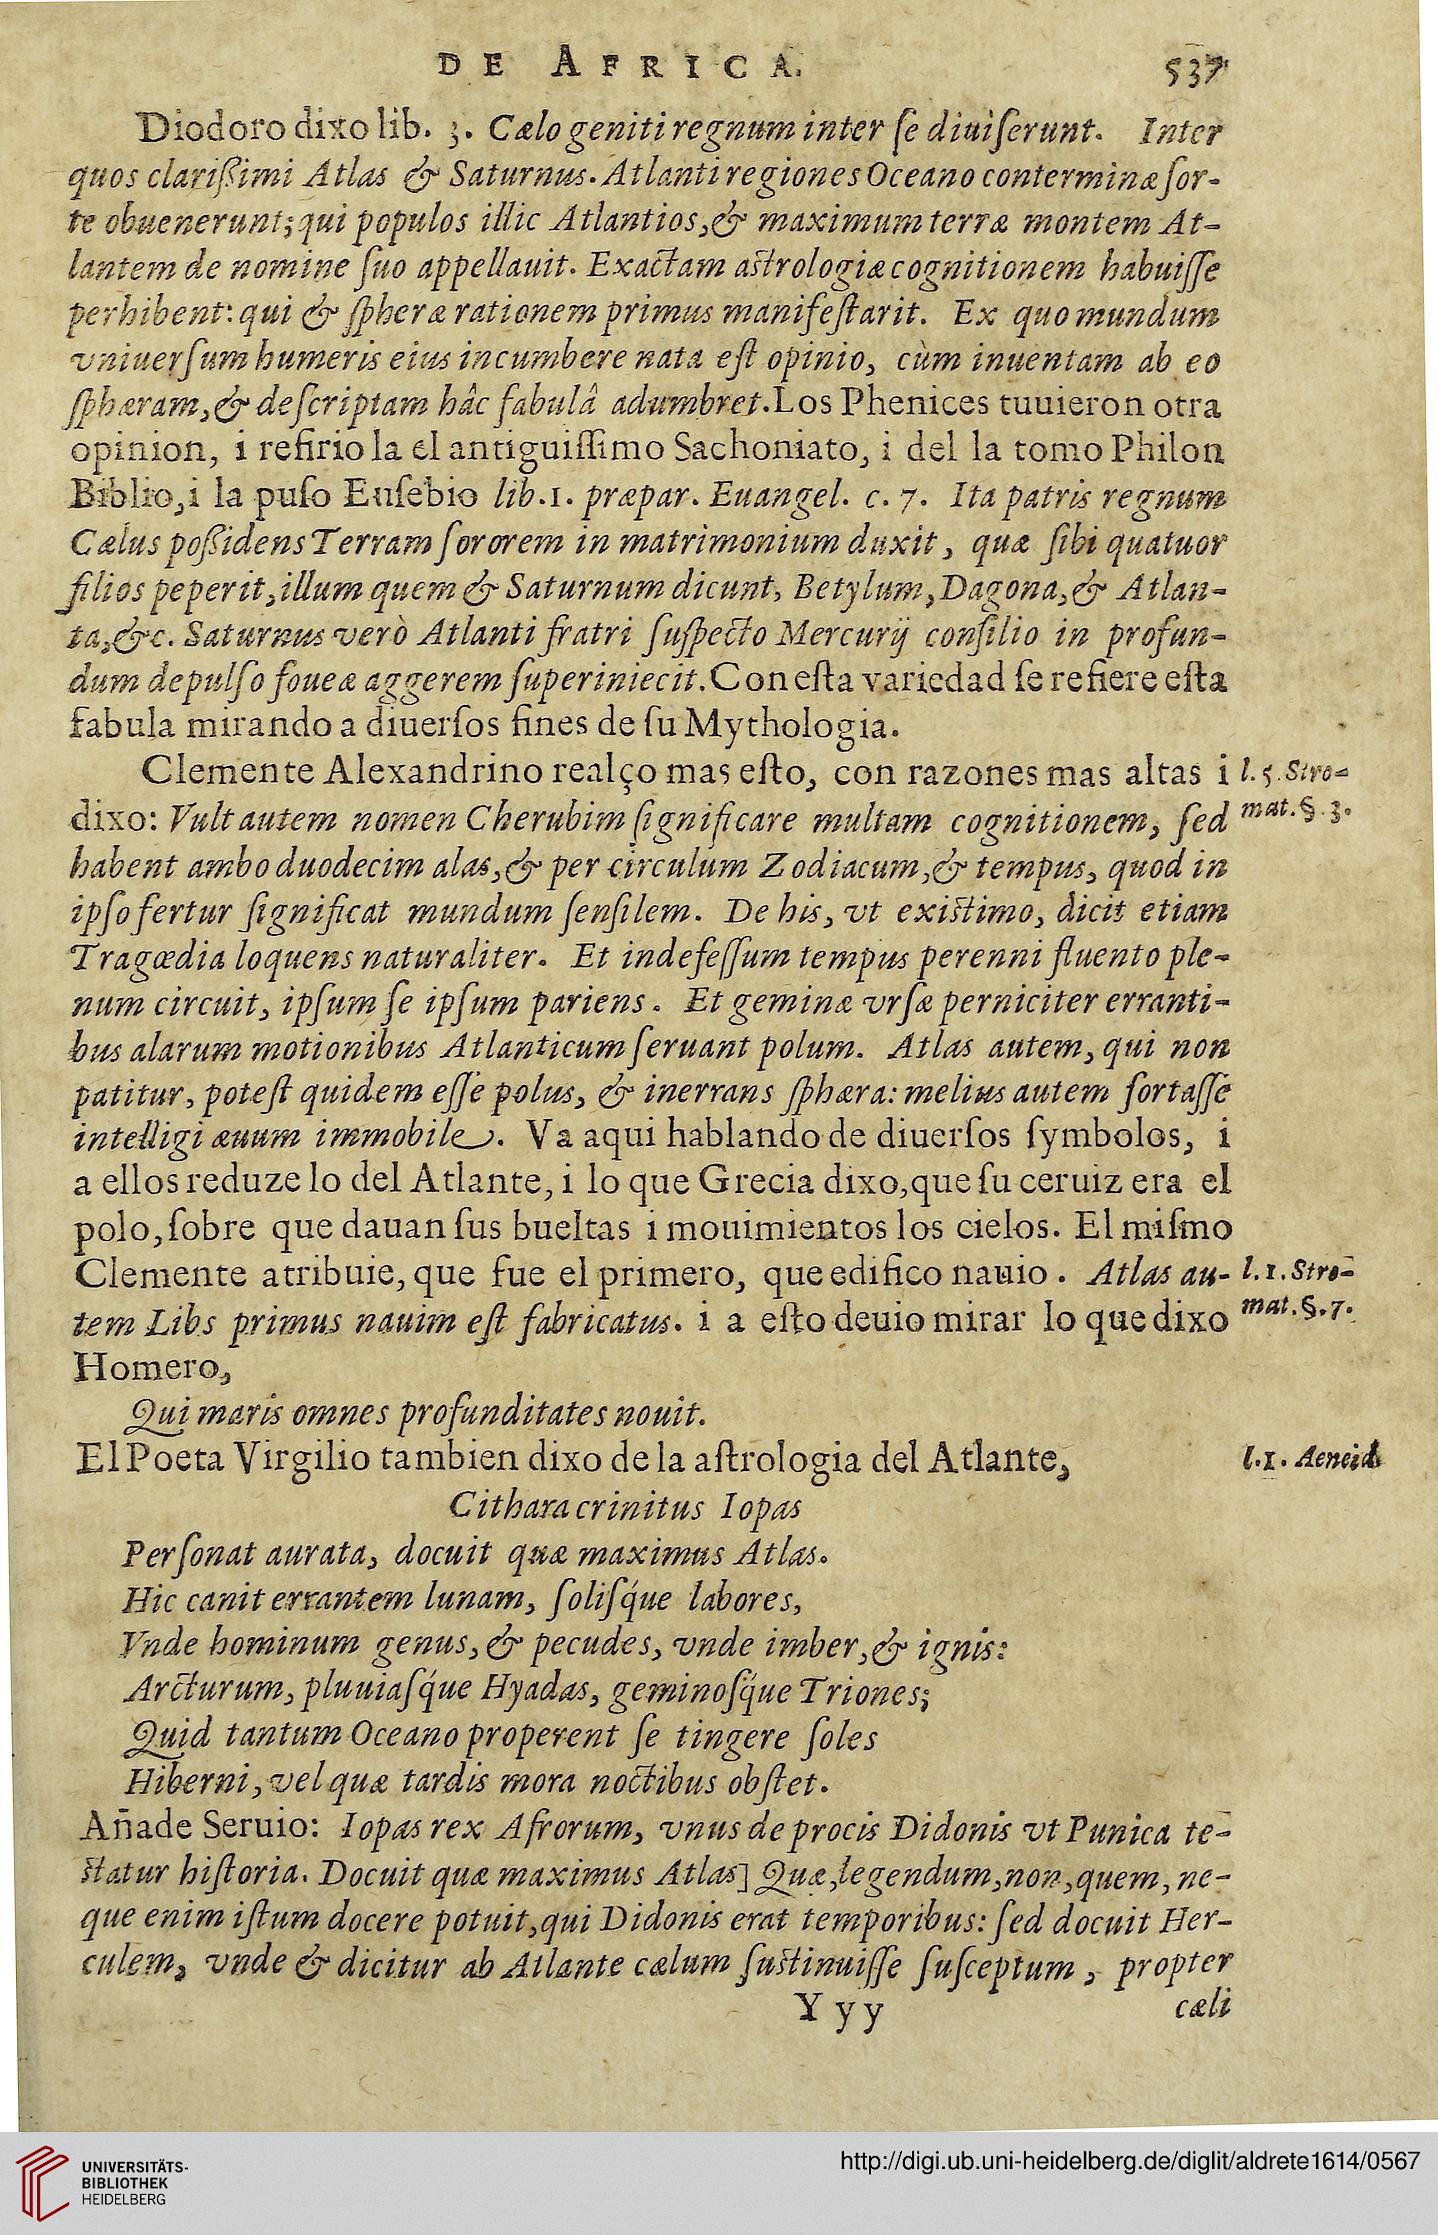 DE AFRICA. 537
Diodoro dixo lib. 3. Cælo geniti regnum inter ſe diuiſerunt. Inter
quos clarißimi Atlas & Saturnus. Atlanti regiones Oceano conterminæ ſor-
te obuenerunt; qui populos illic Atlantios, & maximum terræ montem At-
lantem de nomine ſuo appellauit. Exactam aſtrologiæ cognitionem habuiſſe
perhibent: qui & ſpheræ rationem primus manifeſtarit. Ex quo mundum
vniuerſum humeris eius incumbere nata eſt opinio, cùm inuentam ab eo
ſphæram, & deſcriptam hâc fabulâ adumbret. Los Phenices tuuieron otra
opinion, i refirio la el antiguiſſimo Sachoniato, i del la tomo Philon
Biblio, i la puſo Euſebio lib. 1. præpar. Euangel. c. 7. Ita patris regnum
Cælus poßidens Terram ſororem in matrimonium duxit, quæ ſibi quatuor
filios peperit, illum quem & Saturnum dicunt, Betylum, Dagona, & Atlan-
ta, &c. Saturnus verò Atlanti fratri ſuſpecto Mercurij conſilio in profun-
dum depulſo foueæ aggerem ſuperiniecit. Con eſta variedad ſe refiere eſta
fabula mirando a diuerſos fines de ſu Mythologia.
Clemente Alexandrino realço mas eſto, con razones mas altas i l. 5. Stro-
dixo: Vult autem nomen Cherubim ſignificare multam cognitionem, ſed mat. §. 3.
habent ambo duodecim alas, & per circulum Zodiacum, & tempus, quod in
ipſo fertur ſignificat mundum ſenſilem. De his, vt exiſtimo, dicit etiam
Tragœdia loquens naturaliter. Et indefeſſum tempus perenni fluento ple-
num circuit, ipſum ſe ipſum pariens. Et geminæ vrſæ perniciter erranti-
bus alarum motionibus Atlanticum ſeruant polum. Atlas autem, qui non
patitur, poteſt quidem eſſe polus, & inerrans ſphæra: melius autem fortaſſe
intelligi æuum immobile. Va aqui hablando de diuerſos ſymbolos, i
a ellos reduze lo del Atlante, i lo que Grecia dixo, que ſu ceruiz era el
polo, ſobre que dauan ſus bueltas i mouimientos los cielos. El miſmo
Clemente atribuie, que fue el primero, que edifico nauio. Atlas au- l. 1. Stro-
tem Libs primus nauim eſt fabricatus. i a eſto deuio mirar lo que dixo mat. §. 7.
Homero,
Qui maris omnes profunditates nouit.
El Poeta Virgilio tambien dixo de la aſtrologia del Atlante, l. 1. Aeneid.
Cithara crinitus Iopas
Perſonat aurata, docuit quæ maximus Atlas.
Hic canit errantem lunam, ſoliſq́ue labores,
Vnde hominum genus, & pecudes, vnde imber, & ignis:
Arcturum, pluuiaſq́ue Hyadas, geminoſq́ue Triones;
Quid tantum Oceano properent ſe tingere ſoles
Hiberni, vel quæ tardis mora noctibus obſtet.
Añade Seruio: Iopas rex Afrorum, vnus de procis Didonis vt Punica te-
ſtatur hiſtoria. Docuit quæ maximus Atlas] Quæ, legendum, non, quem, ne-
que enim iſtum docere potuit, qui Didonis erat temporibus: ſed docuit Her-
culem, vnde & dicitur ab Atlante cælum ſuſtinuiſſe ſuſceptum, propter
Yyy cæli
UNIVERSITÄTS-
BIBLIOTHEK
HEIDELBERG
http://digi.ub.uni-heidelberg.de/diglit/aldrete1614/0567